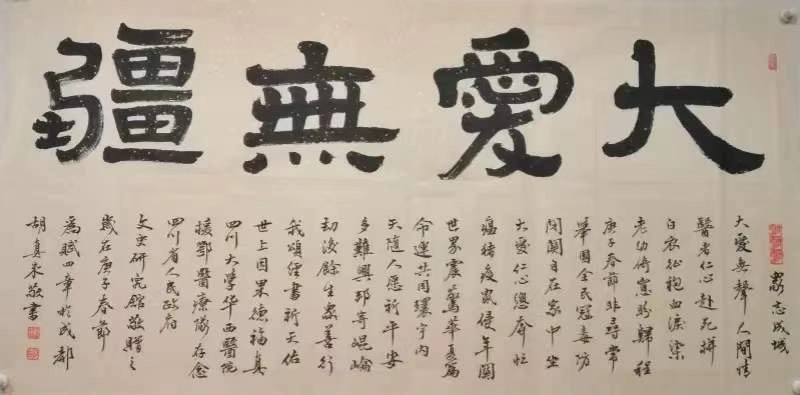 大愛無疆
眾志成城
大愛無聲人間情
醫者仁心赴死拼
白衣征袍血淚染
老幼倚窓盼歸程
庚子春節非尋常
舉國全民冠毒防
閉關自在家中坐
大愛仁心總奔忙
瘟猪瘦鼠侵年關
世界震驚華夏篇
命運共同環宇內
天隨人愿祈平安
多難興邦寄崐崘
劫後餘生眾善行
我頌儒書祈天佑
世上因果德福真
四川大學华西醫院
援鄂醫療隊存念
四川省人民政府
文史研究館敬贈之
歲在庚子春節
為賦四章於成都
胡真來敬書